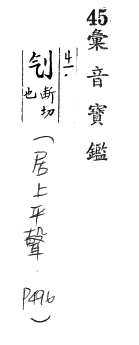 45彙音寶鑑
ㄐㄧ.
刏 斷切也
(居上平聲. P496)